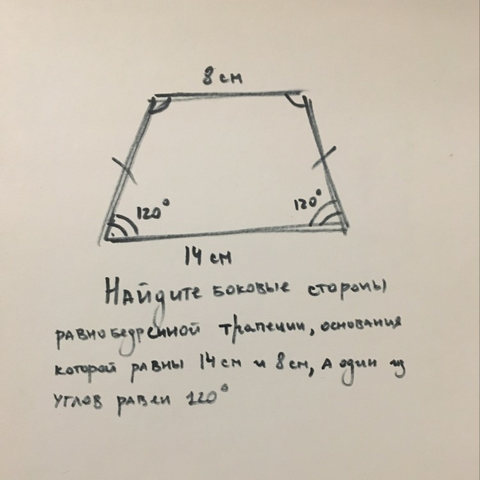 8 см
120°
120°
14 см
Найдите боковые стороны
равнобедренной трапеции, основания
которой равны 14 см и 8 см, а один из
углов равен 120°